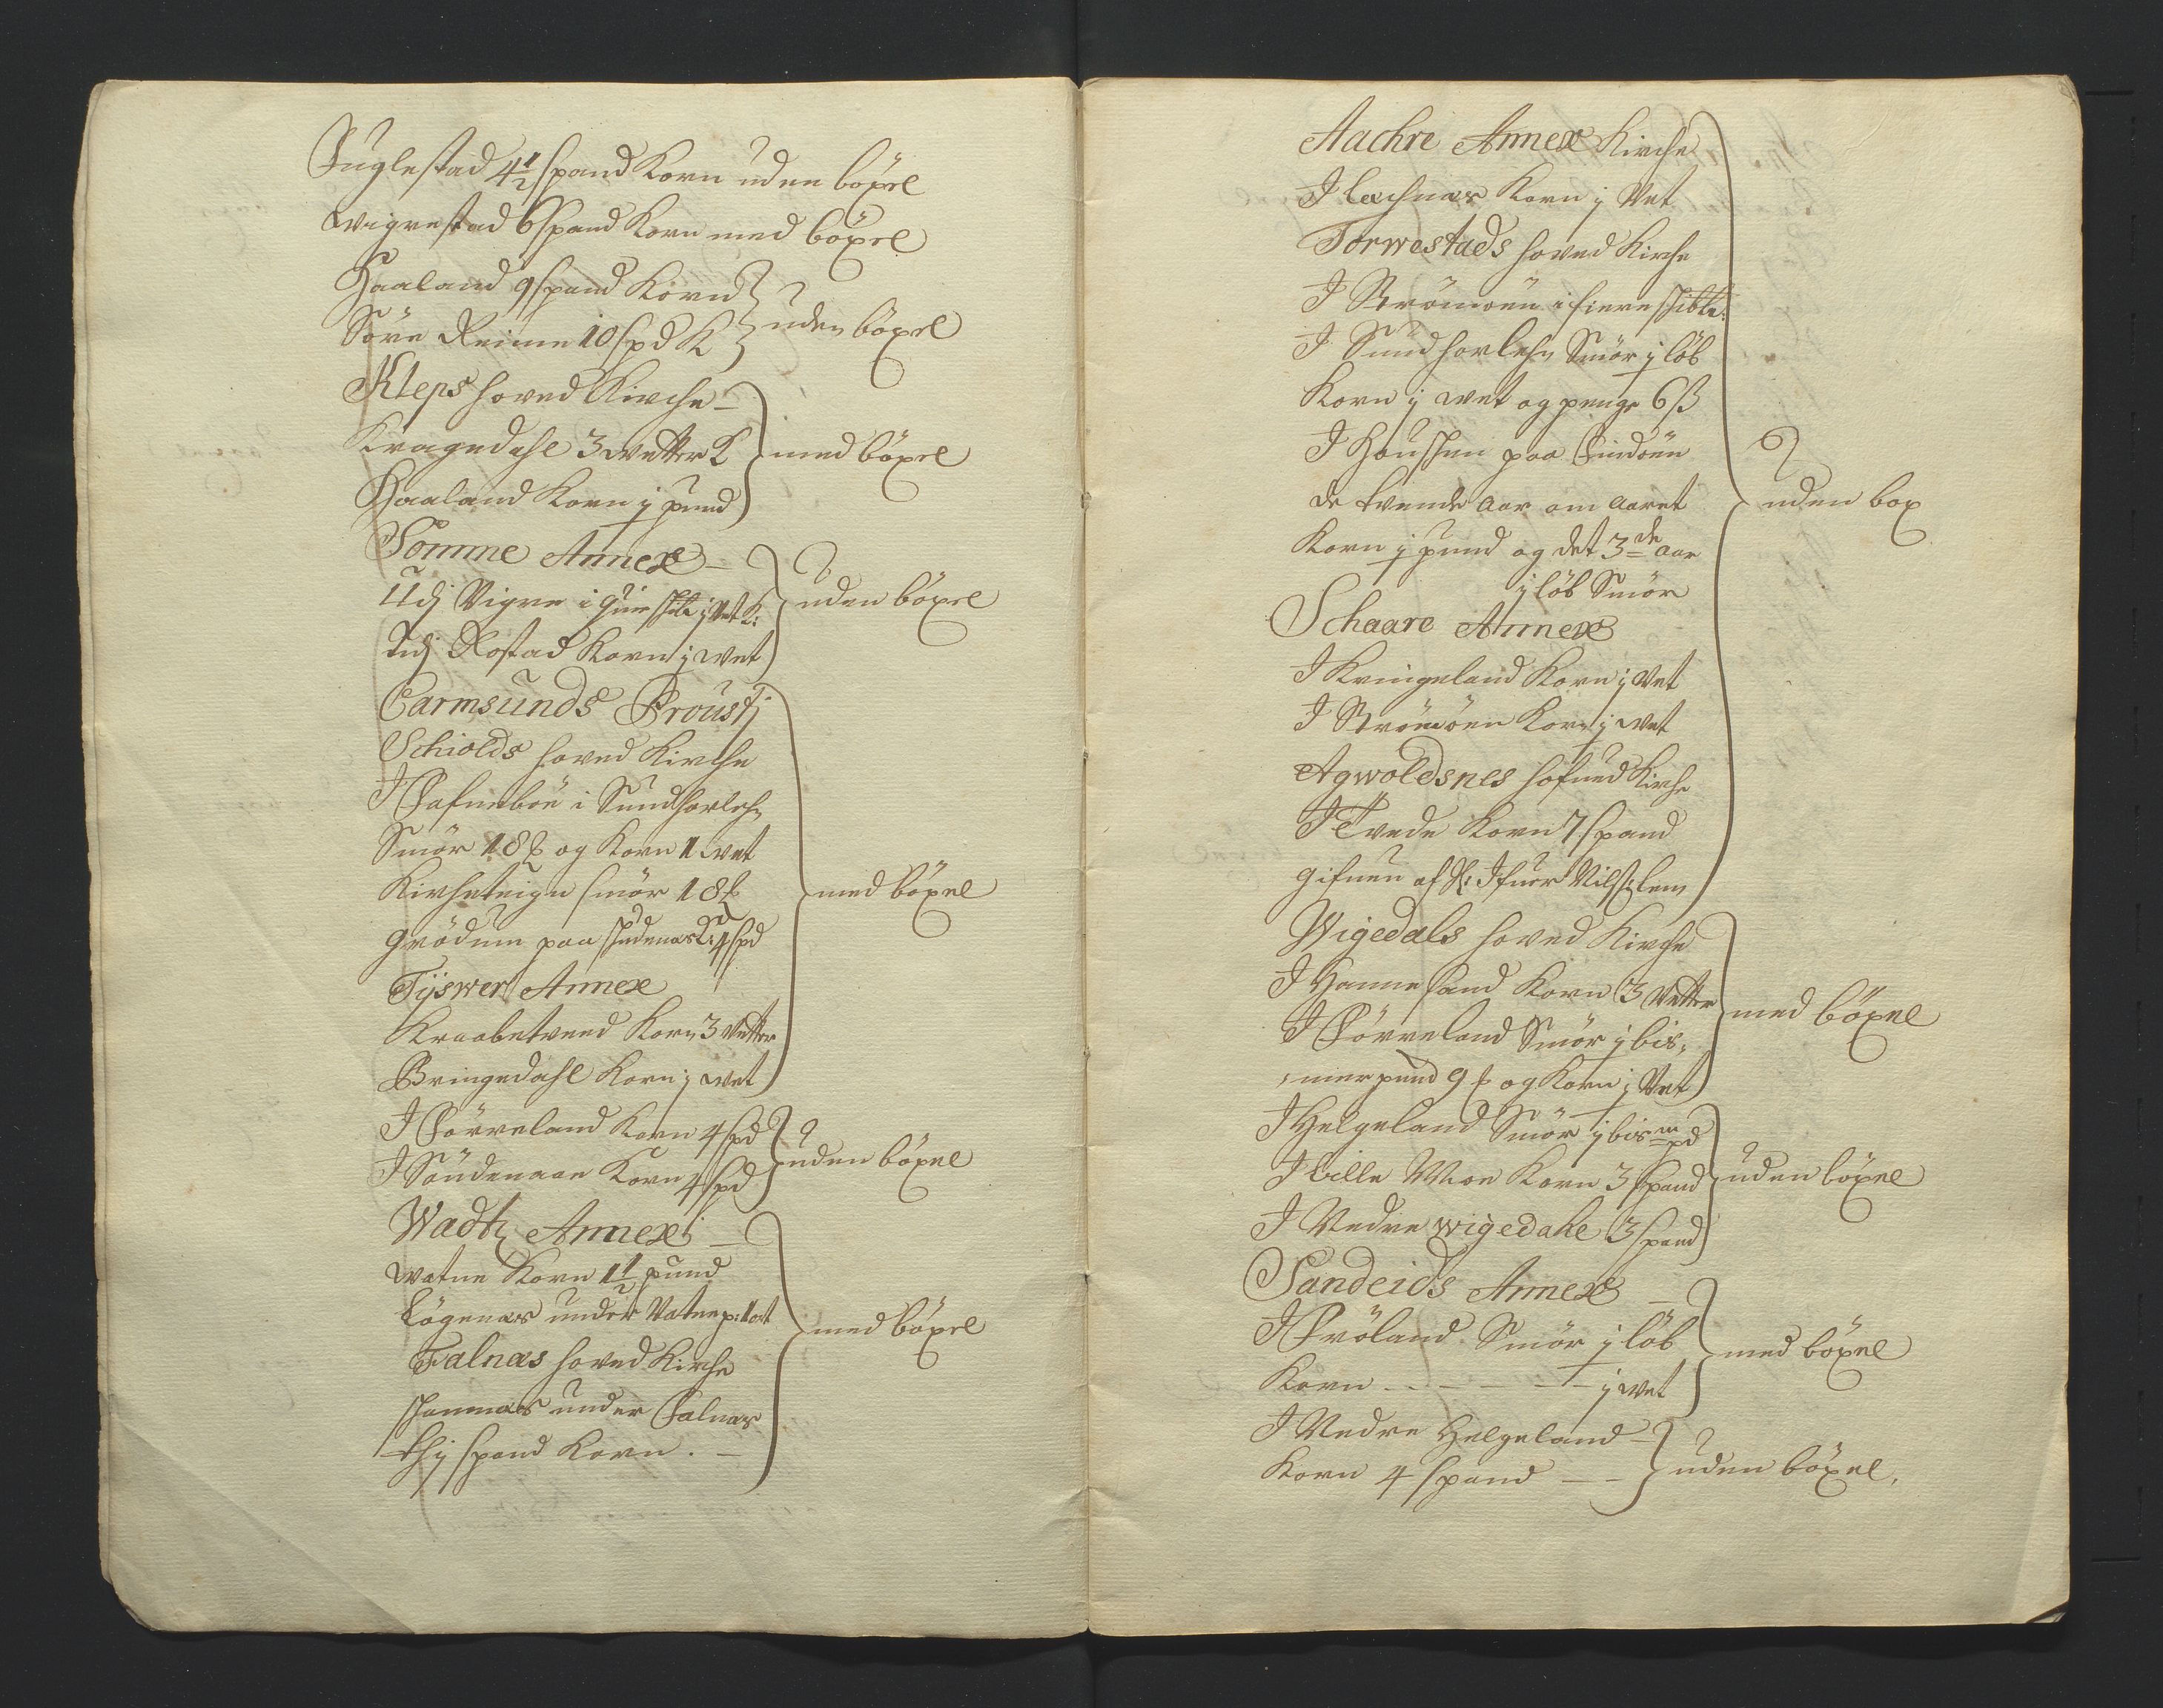 Fuglestad 4 1/2 spand Korn uden böxel
Wigrestad 6 spand Korn med böxel
Haaland 9 spand Korn
Söre Reime 10 spd K
uden böxel
Kleps hoved Kirche
Kragedahl 3 wetter K
Haaland Korn j pund
med böxel
Somme Annex
Udj Vigre i Quie schibr j Vet K:
Udj Rostad Korn j wet
uden böxel
Carmsunds Proustj
Schiolds hoved Kirche
J Hafneboe i Sundhorlehn
Smör 18 ℔ og Korn 1 wet
Kircheteign smör 18 ℔
Grödem paa schudenæs K: 4 spd
Tijswer Annex
Kraabetved Korn 3 Vetter
Bringedahl Korn j wet
med böxel
J Förreland Korn 4 spd
J Söndenaae Korn 4 spd
uden böxel
Wadtz Annex
Watne Korn 1 1/2 pund
Lögenæs under Vatne p: 1 ort
Falnæs hoved Kirche
schannæs under Falnæs
thj spand Korn.
med böxel
Aachre Annex Kirche
J Lachnæs Korn j Vet
Torwestads hoved Kirche
J Strömöen i fiere schibbr:
J Sundhorlehn Smör j löb
Korn j wet og penge 6 ß
J Houschen paa Findöen
de tvende Aar om aaret
Korn j pund og det 3de Aar
j löb Smör
Schaare Annex
J Kringeland Korn j Vet
J Strömöen Korn j wet
Agwoldsnes hofued Kirche
J Tvede Korn 7 spand
gifuen af H: Ifuer Vilhelm
uden box
Wigedals hoved Kirche
J Hannesand Korn 3 Vetter
J Förreland Smör j bis,
,merpund 9 ℔ og Korn j Vet
med böxel
J Helgeland Smör j bism pd
J Lille Moe Korn 3 Spand
J Nedre Wigedahl 3 spand
uden böxel
Sandeids Annex
J Fröland Smör j löb
Korn - - - - - j wet
med böxel
J Nedre Helgeland
Korn 4 spand
uden böxel.